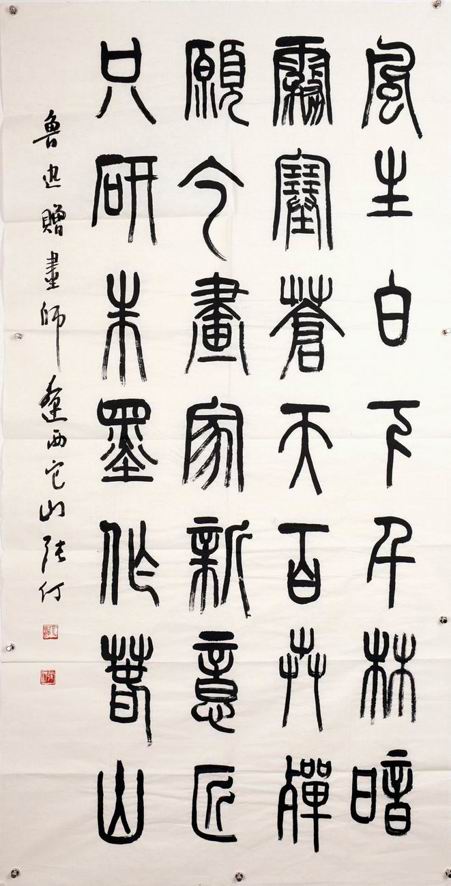 風生白下千林暗
霧塞蒼天百卉殫
願乞畫家新意匠
只研朱墨作春山
魯迅贈畫師 遼西它山張仃